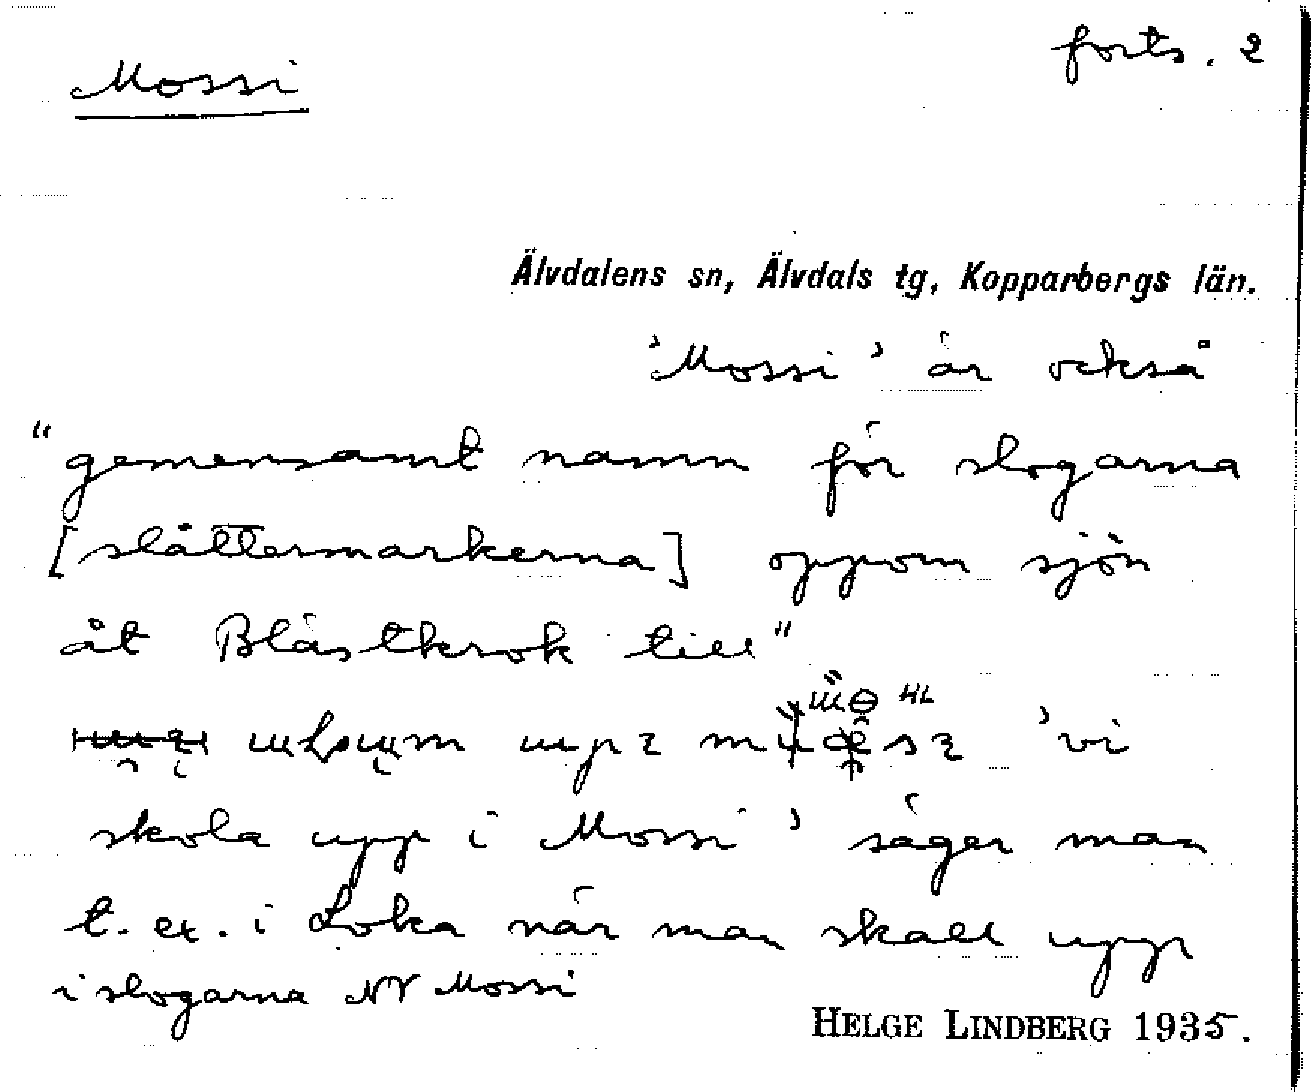 Mossi
forts. 2
Älvdalens sn, Älvdals tg, Kopparbergs län.
'Mossi' är också
"gemensamt namn för slogarna
[slåttermarkerna] oppom sjön
åt Blästkrok till"
HL 'vi
skola upp i Mossi' säger man
t. ex. i Loka när man skall upp
i slogarna NV Mossi
HELGE LINDBERG 1935.